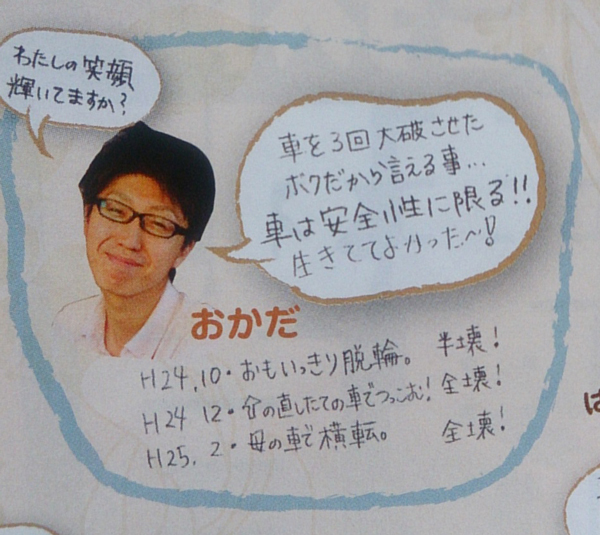 わたしの笑顔
輝いてますか?
車を3回大破させた
ボクだから言える事…
車は安全性に限る!!
生きててよかった〜!
おかだ
H24.10・おもいっきり脱輪。 半壊!
H24 12・の直したての車でつっこむ! 全壊!
H25. 2・母の車で横転。 全壊!